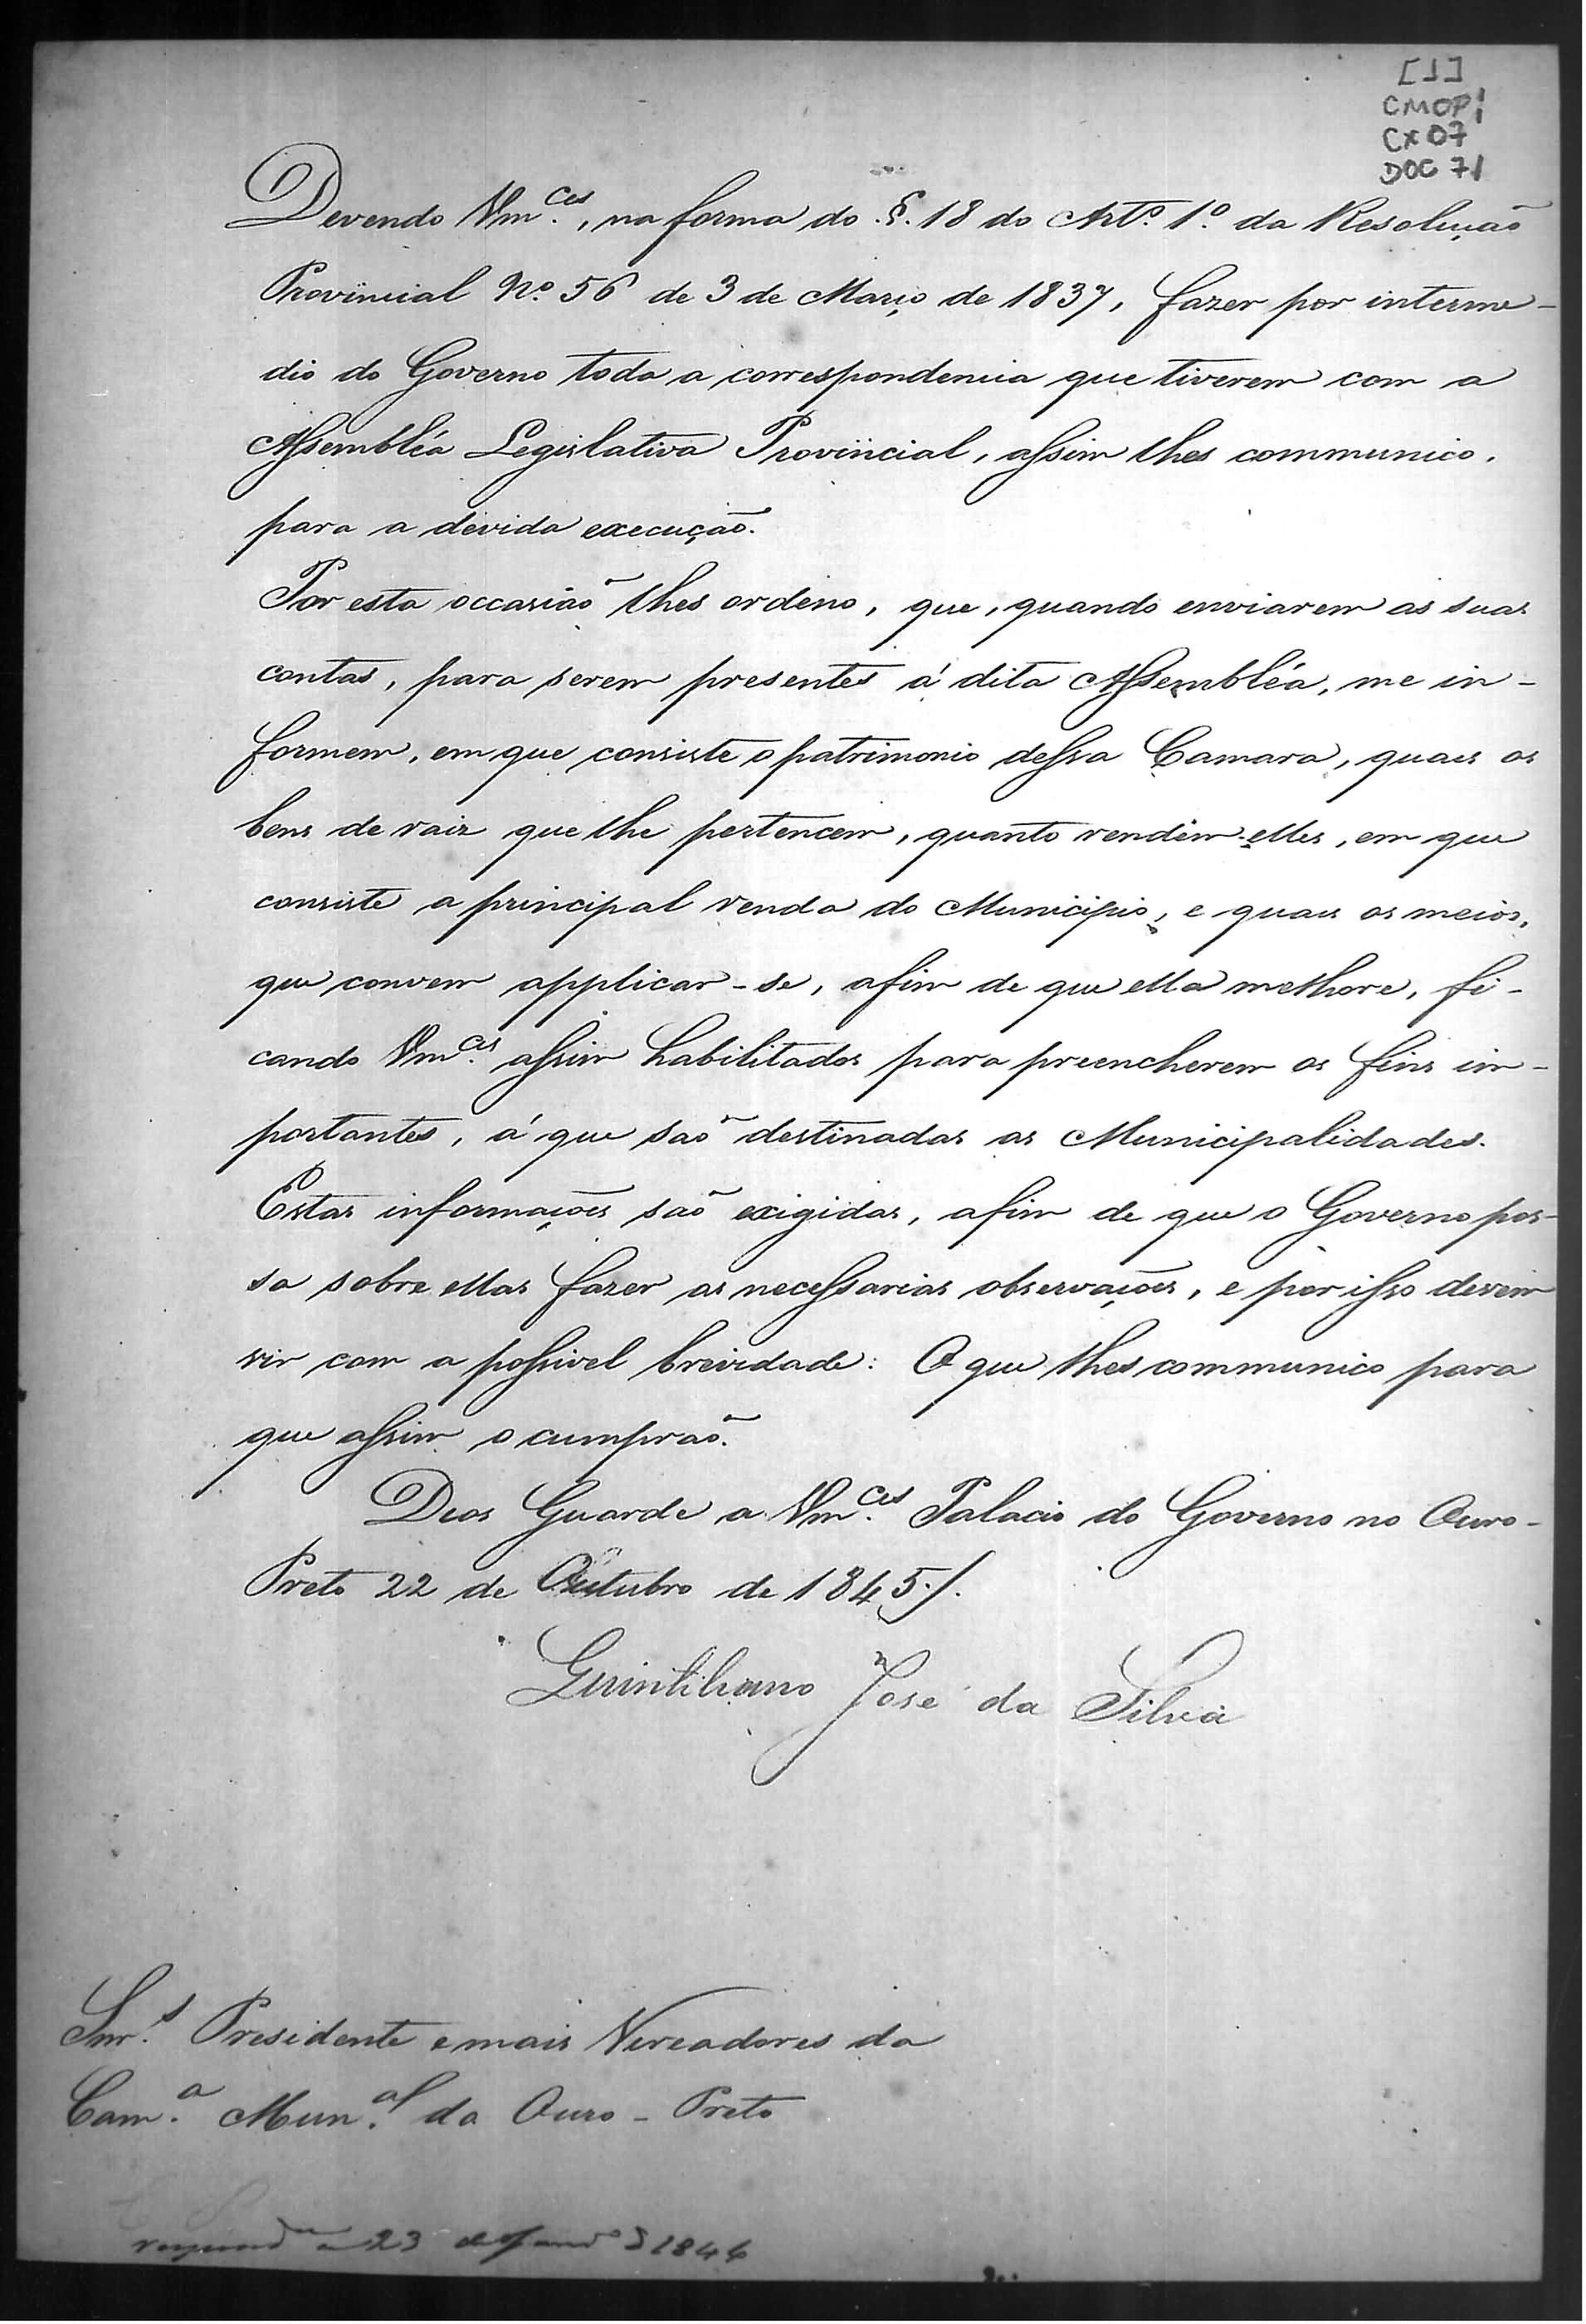 [1]
CMOP
CX 07
DOC 71
Devendo Vm.ces, na forma do §. 18 do Art.º 1.º da Resolução
Provincial N.º 56 de 3 de Março de 1837, fazer por interme-
dio do Governo toda a correspondencia que tiverem com a
Assembléa Legislativa Provincial, assim lhes communico,
para a devida execução.
Por esta occasião lhes ordeno, que, quando enviarem as suas
contas, para serem presentes á dita Assembléa, me in-
formem, em que consiste o patrimonio dessa Camara, quaes os
bens de raiz que lhe pertencem, quanto rendem elles, em que
consiste a principal renda do Municipio, e quaes os meios,
que convem applicar-se, afim de que ella melhore, fi-
cando Vm.ces assim habilitados para preencherem os fins im-
portantes, á que são destinadas as Municipalidades.
Estas informações são exigidas, afim de que o Governo pos-
sa sobre ellas fazer as necessarias observações, e por isso devem
vir com a possivel brevidade: O que lhes communico para
que assim o cumprão.
Deos Guarde a Vm.ces Palacio do Governo no Ouro-
Preto 22 de Outubro de 1845./.
Quintiliano José da Silva
Snr.s Presidente e mais Vereadores da
Cam.a Mun.al do Ouro-Preto
23 de 1846